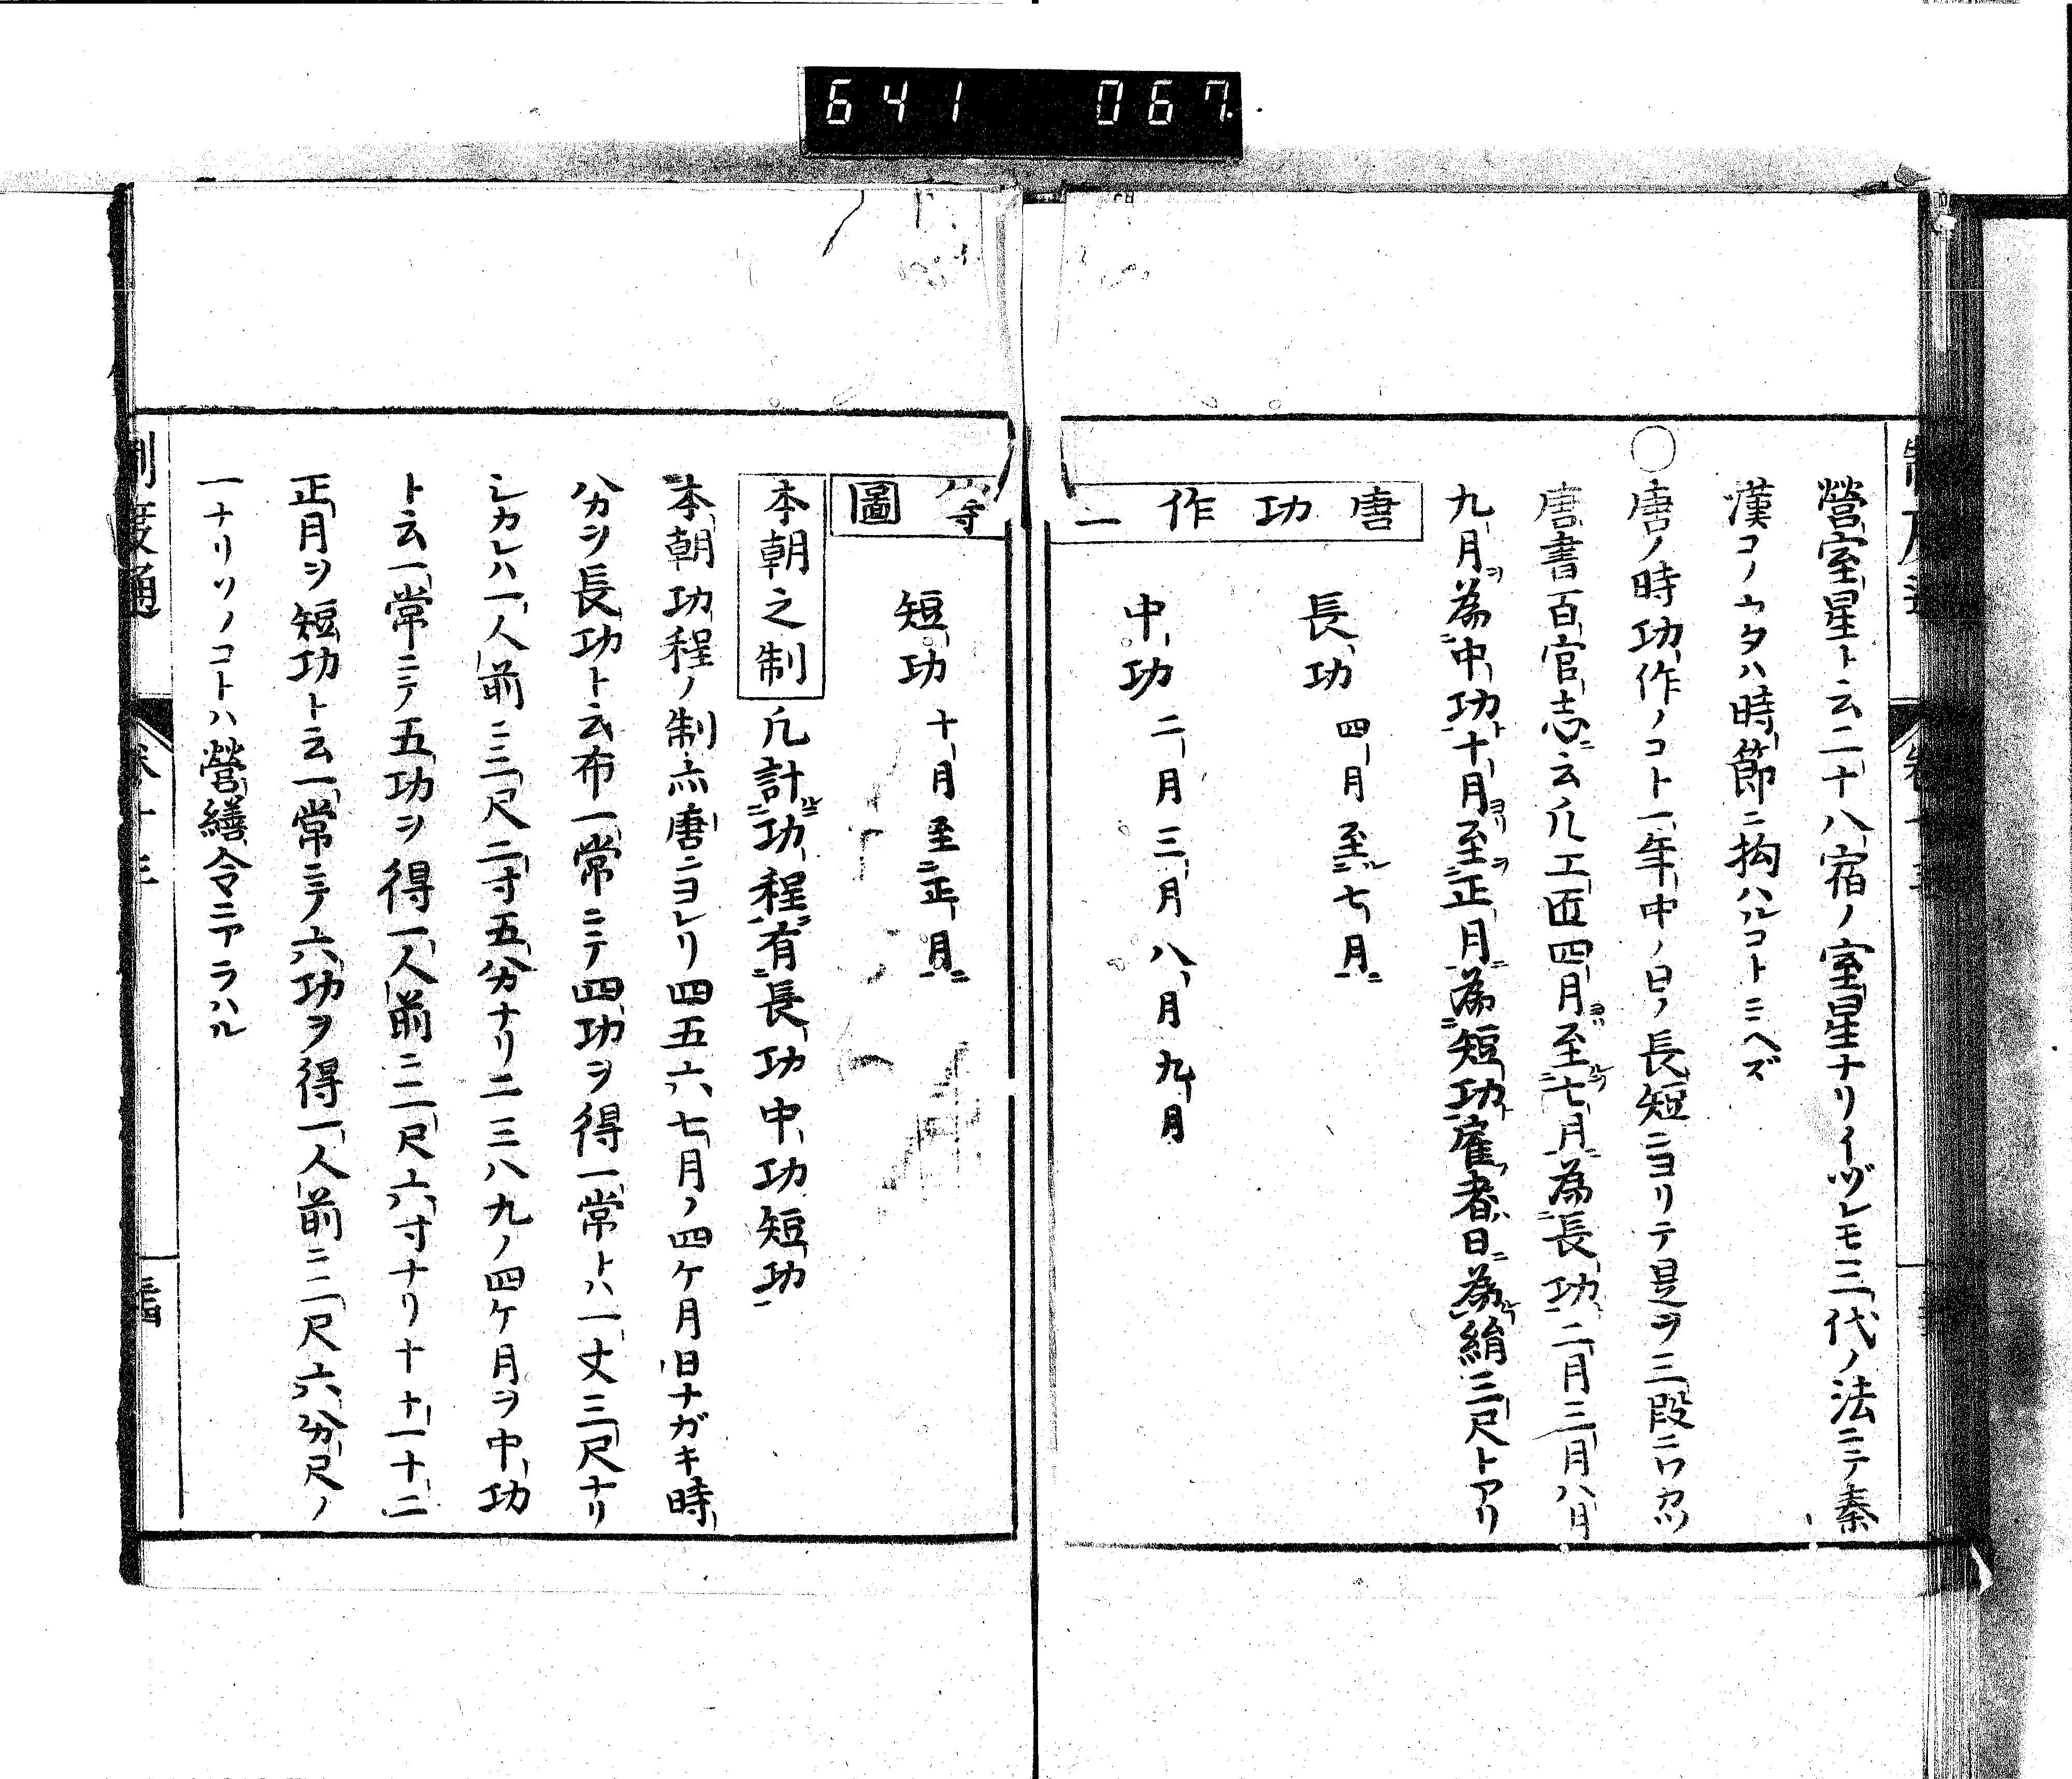 641 067
營室星ト云二十八宿ノ室星ナリイヅレモ三代ノ法ニテ秦
漢コノカタハ時節ニ拘ハルコトミヘズ
〇唐ノ時功作ノコト一年中ノ日ノ長短ニヨリテ是ヲ三段ニワカツ
唐書百官志ニ云凢工匠四月ヨリ至七月為長功二月三月八月
九月ヲ為中功ト十月ヨリ至正月ヲ為短功雇者日ニ為絹三尺トアリ
唐功作一
長功 四月至七月
中功 二月三月八月九月
等圖
短功 十月至正月
本朝之制 凢計功程有長功中功短功
本朝功程ノ制亦唐ニヨレリ四五六七月ノ四ケ月日ナガキ時
分ヲ長功ト云布一常ニテ四功ヲ得一常トハ一丈三尺ナリ
シカレハ一人前ニ三尺二寸五分ナリ二三八九ノ四ケ月ヲ中功
ト云一常ニテ五功ヲ得一人前ニ二尺六寸ナリ十十一十二
正月ヲ短功ト云一常ニテ六功ヲ得一人前ニ二尺六分尺ノ
一ナリソノコトハ營繕令ニアラハル
制度通